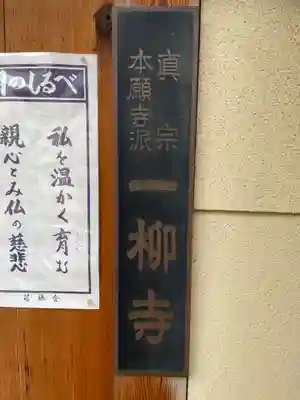 真宗
本願寺派
一柳寺
のしるべ
私を温かく育む
親心とみ仏の慈悲